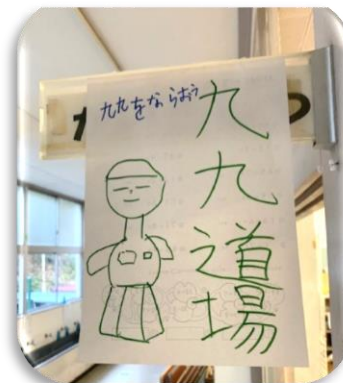 九九をならおう
九九道場